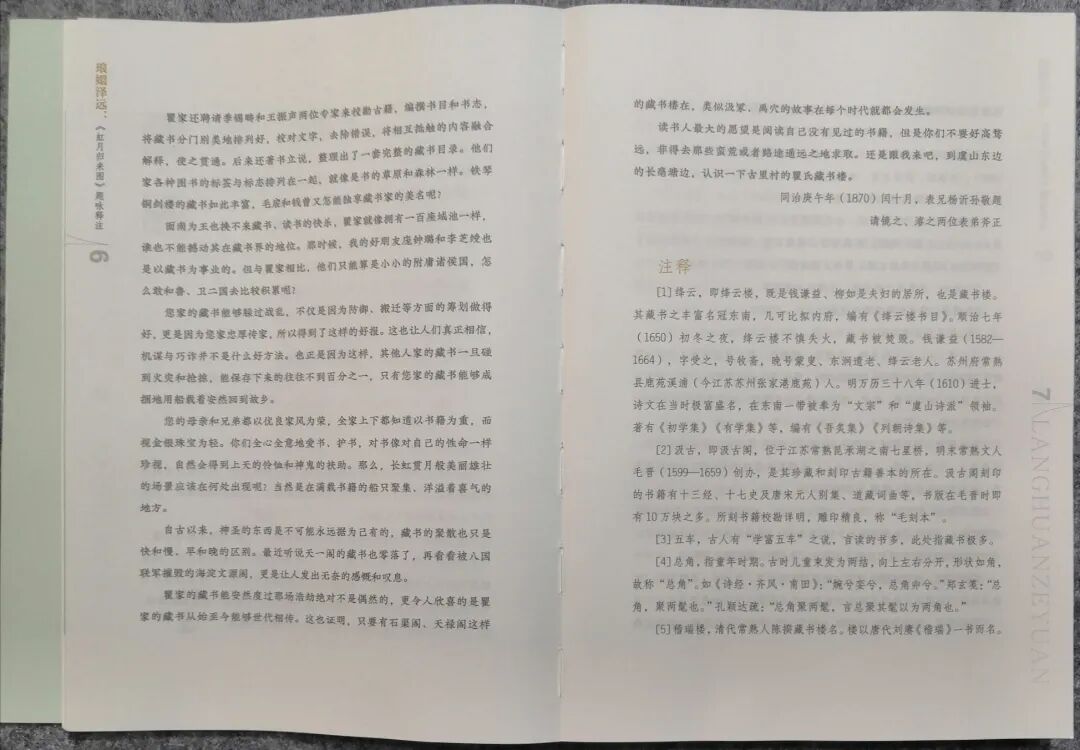 琅嬛泽远：《虹月归来图》题咏释注
6
瞿家还聘请季锡畴和王振声两位专家来校勘古籍，编撰书目和书志，
将藏书分门别类地排列好，校对文字、去除错误，将相互抵触的内容融合
解释，使之贯通。后来还著书立说，整理出了一套完整的藏书目录。他们
家各种图书的标签与标志排列在一起，就像是书的草原和森林一样。铁琴
铜剑楼的藏书如此丰富，毛扆和钱曾又怎能独享藏书家的美名呢？
面南为王也换不来藏书、读书的快乐，瞿家就像拥有一百座城池一样，
谁也不能撼动其在藏书界的地位。那时候，我的好朋友庞钟璐和李芝绶也
是以藏书为事业的。但与瞿家相比，他们只能算是小小的附庸诸侯国，怎
么敢和鲁、卫二国去比较积累呢？
您家的藏书能够躲过战乱，不仅是因为防御、搬迁等方面的筹划做得
好，更是因为您家忠厚传家，所以得到了这样的好报。这也让人们真正相信，
机谋与巧诈并不是什么好方法。也正是因为这样，其他人家的藏书一旦碰
到火灾和抢掠，能保存下来的往往不到百分之一，只有您家的藏书能够成
捆地用船载着安然回到故乡。
您的母亲和兄弟都以优良家风为荣，全家上下都知道以书籍为重，而
视金银珠宝为轻。你们全心全意地爱书、护书，对书像对自己的性命一样
珍视，自然会得到上天的怜恤和神鬼的扶助。那么，长虹贯月般美丽雄壮
的场景应该在何处出现呢？当然是在满载书籍的船只聚集、洋溢着喜气的
地方。
自古以来，神圣的东西是不可能永远据为己有的，藏书的聚散也只是
快和慢、早和晚的区别。最近听说天一阁的藏书也零落了，再看看被八国
联军摧毁的海淀文源阁，更是让人发出无奈的感慨和叹息。
瞿家的藏书能安然度过那场浩劫绝对不是偶然的，更令人欣喜的是瞿
家的藏书从始至今能够世代相传。这也证明，只要有石渠阁、天禄阁这样
的藏书楼在，类似汲冢、禹穴的故事在每个时代就都会发生。
读书人最大的愿望是阅读自己没有见过的书籍，但是你们不要好高骛
远，非得去那些蛮荒或者路途遥远之地求取。还是跟我来吧，到虞山东边
的长亳塘边，认识一下古里村的瞿氏藏书楼。
同治庚午年（1870）闰十月，表兄杨沂孙敬题
请镜之、濬之两位表弟斧正
注释
[1] 绛云，即绛云楼，既是钱谦益、柳如是夫妇的居所，也是藏书楼。
其藏书之丰富名冠东南，几可比拟内府，编有《绛云楼书目》。顺治七年
（1650）初冬之夜，绛云楼不慎失火，藏书被焚毁。钱谦益（1582—
1664），字受之，号牧斋，晚号蒙叟、东涧遗老、绛云老人。苏州府常熟
县鹿苑溪浦（今江苏苏州张家港鹿苑）人。明万历三十八年（1610）进士，
诗文在当时极富盛名，在东南一带被奉为“文宗”和“虞山诗派”领袖。
著有《初学集》《有学集》等，编有《吾炙集》《列朝诗集》等。
[2] 汲古，即汲古阁，位于江苏常熟昆承湖之南七星桥，明末常熟文人
毛晋（1599—1659）创办，是其珍藏和刻印古籍善本的所在。汲古阁刻印
的书籍有十三经、十七史及唐宋元人别集、道藏词曲等，书版在毛晋时即
有10万块之多。所刻书籍校勘详明，雕印精良，称“毛刻本”。
[3] 五车，古人有“学富五车”之说，言读的书多，此处指藏书极多。
[4] 总角，指童年时期。古时儿童束发为两结，向上左右分开，形状如角，
故称“总角”。如《诗经·齐风·甫田》：“婉兮娈兮，总角丱兮。”郑玄笺：“总
角，聚两髦也。”孔颖达疏：“总角聚两髦，言总聚其髦以为两角也。”
[5] 稽瑞楼，清代常熟人陈揆藏书楼名。楼以唐代刘赓《稽瑞》一书而名。
7
LANGHUANZEYUAN